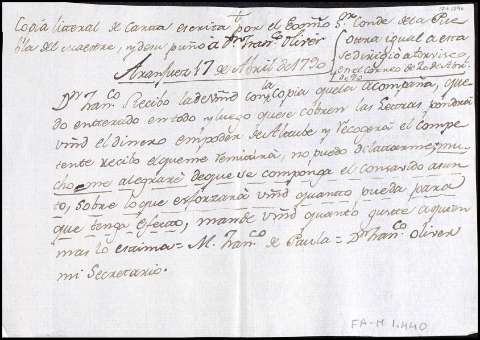 Copia literal de Carta escrita por el Exmño Sr. Conde de la Pue
bla del maestre, y de su puño á Dn. Franco. Oliver
Aranjuez 17 de Abril de 1790
otra igual a esta
se dirigió a
en el Correo de 20 de Abril
de 90
Dn. Franco. Recibo la de vmd con la Copia que la acompaña, que
do enterado en todo y luego que se cobren las Letras pondrá
vmd el dinero en poder de Alaube y recogerá el compe
tente recibo el que me remitirá, no puedo dejar mu
cho me alegraré de que se componga el consavido asun
to, sobre lo que esforzará vmd quanto pueda para
que tenga efecto, mande vmd quanto guste a quien
mas lo estima = M. Franco. de Paula = Dn. Franco. Oliver
mi Secretario.
FA-M 1.440